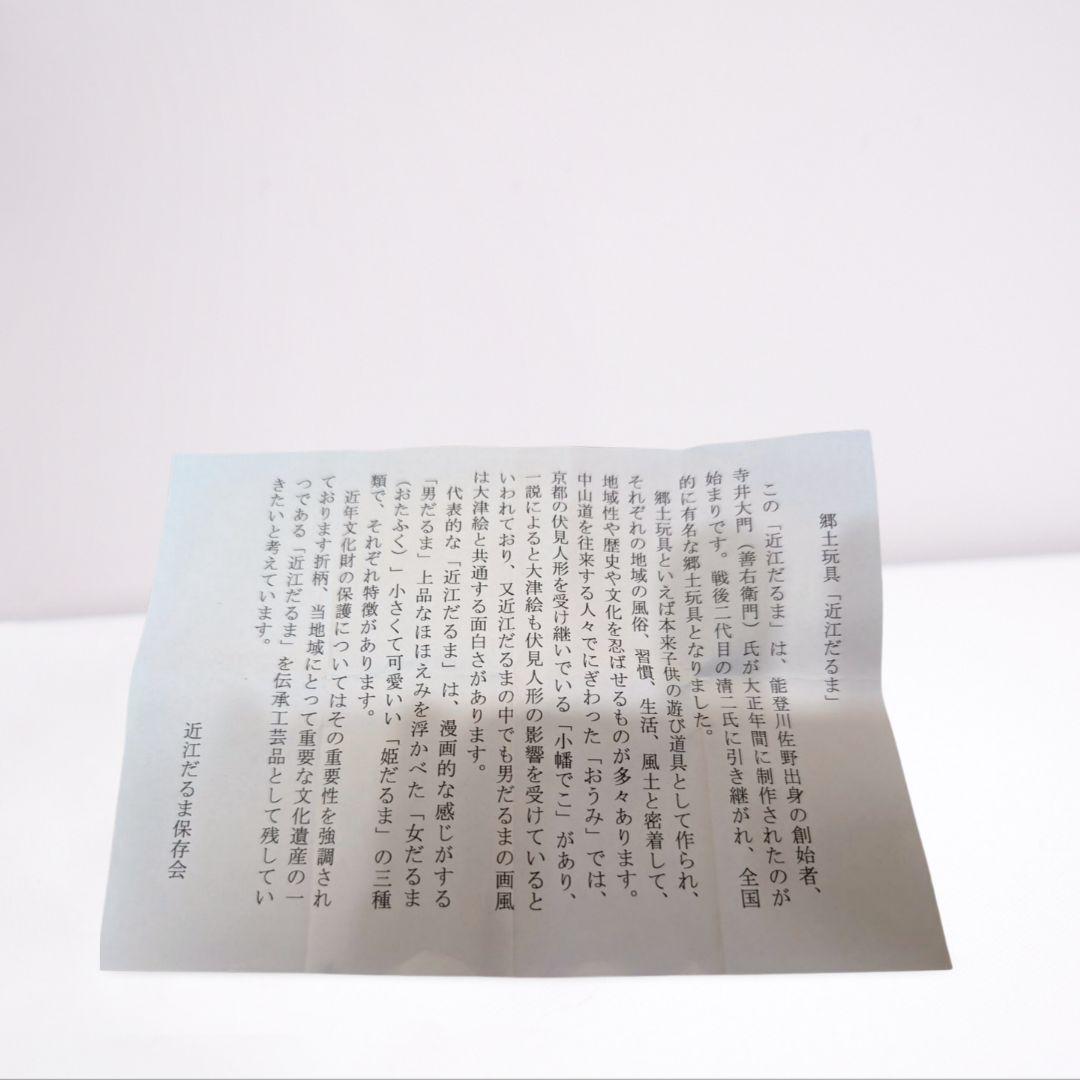 郷土玩具「近江だるま」
この「近江だるま」は、能登川佐野出身の創始者、
寺井大門（善右衛門）氏が大正年間に制作されたのが
始まりです。戦後二代目の清二氏に引き継がれ、全国
的に有名な郷土玩具となりました。
郷土玩具といえば本来子供の遊び道具として作られ、
それぞれの地域の風俗、習慣、生活、風土と密着して、
地域性や歴史や文化を忍ばせるものが多々あります。
中山道を往来する人々でにぎわった「おうみ」では、
京都の伏見人形を受け継いでいる「小幡でこ」があり、
一説によると大津絵も伏見人形の影響を受けていると
いわれており、又近江だるまの中でも男だるまの画風
は大津絵と共通する面白さがあります。
代表的な「近江だるま」は、漫画的な感じがする
「男だるま」上品なほほえみを浮かべた「女だるま
（おたふく）」小さくて可愛いい「姫だるま」の三種
類で、それぞれ特徴があります。
近年文化財の保護についてはその重要性を強調され
ております折柄、当地域にとって重要な文化遺産の一
つである「近江だるま」を伝承工芸品として残してい
きたいと考えています。
近江だるま保存会